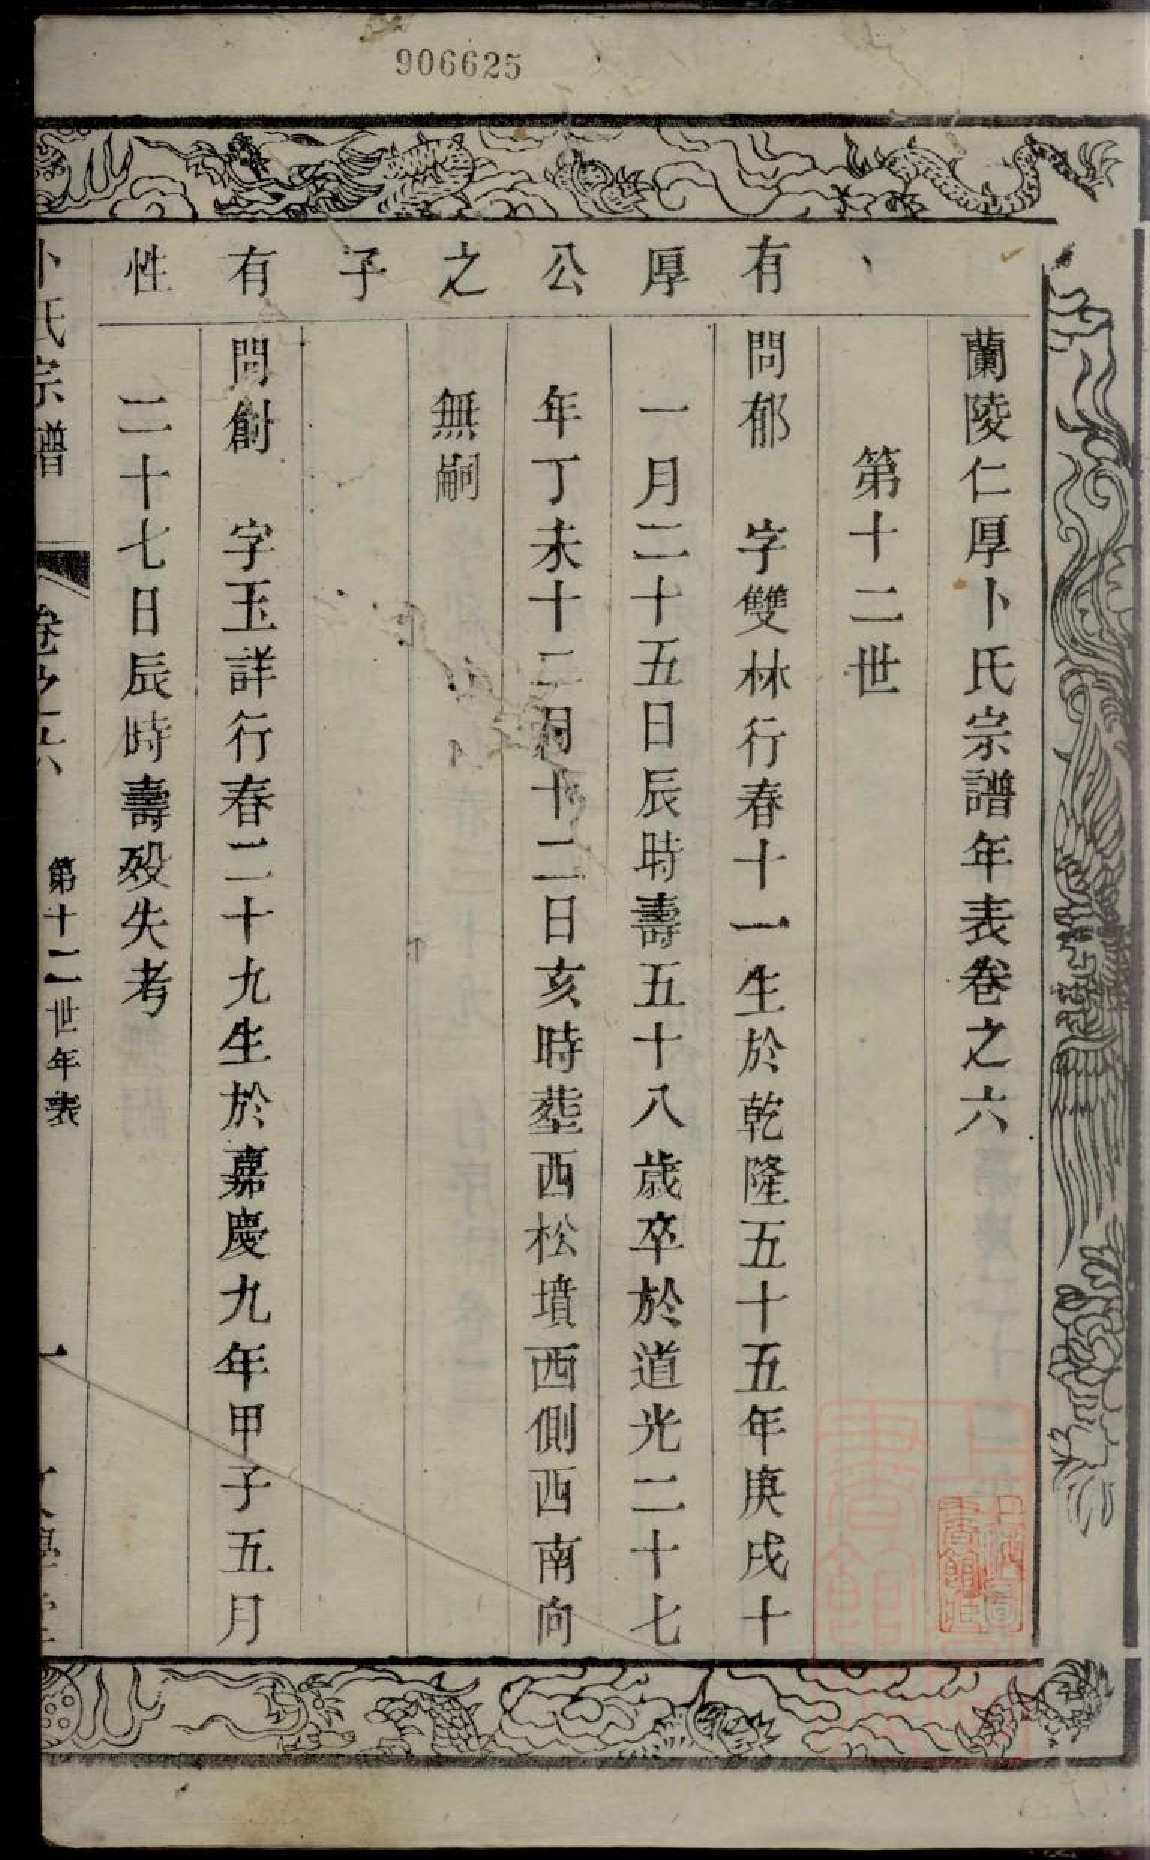 906625
蘭陵仁厚卜氏宗譜年表卷之六
第十二世
有 問郁 字雙林行春十一生於乾隆五十五年庚戌十
厚 一月二十五日辰時壽五十八歲卒於道光二十七
公 年丁未十二月十二日亥時塟西松墳西側西南向
之 無嗣
子
有 問創 字玉詳行春二十九生於嘉慶九年甲子五月
性 二十七日辰時壽殁失考
卜氏宗譜 卷之六 第十二世年表 一